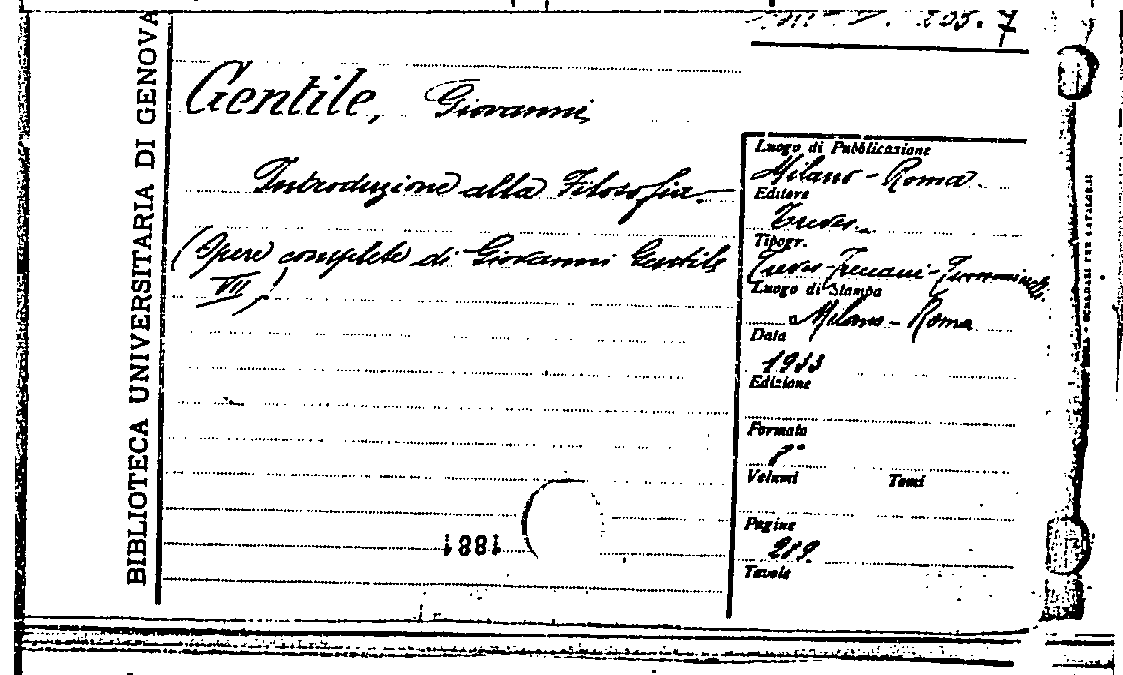 205.7
BIBLIOTECA UNIVERSITARIA DI GENOVA
Gentile, Giovanni
Introduzione alla Filosofia.
(Opere complete di Giovanni Gentile
VII)
1881
Luogo di Pubblicazione
Milano - Roma
Editore
Treves
Tipogr.
Treves-Treccani-Tumminelli
Luogo di Stampa
Milano - Roma
Data
1933
Edizione
Formato
8°
Volumi Tomi
Pagine
289.
Tavole